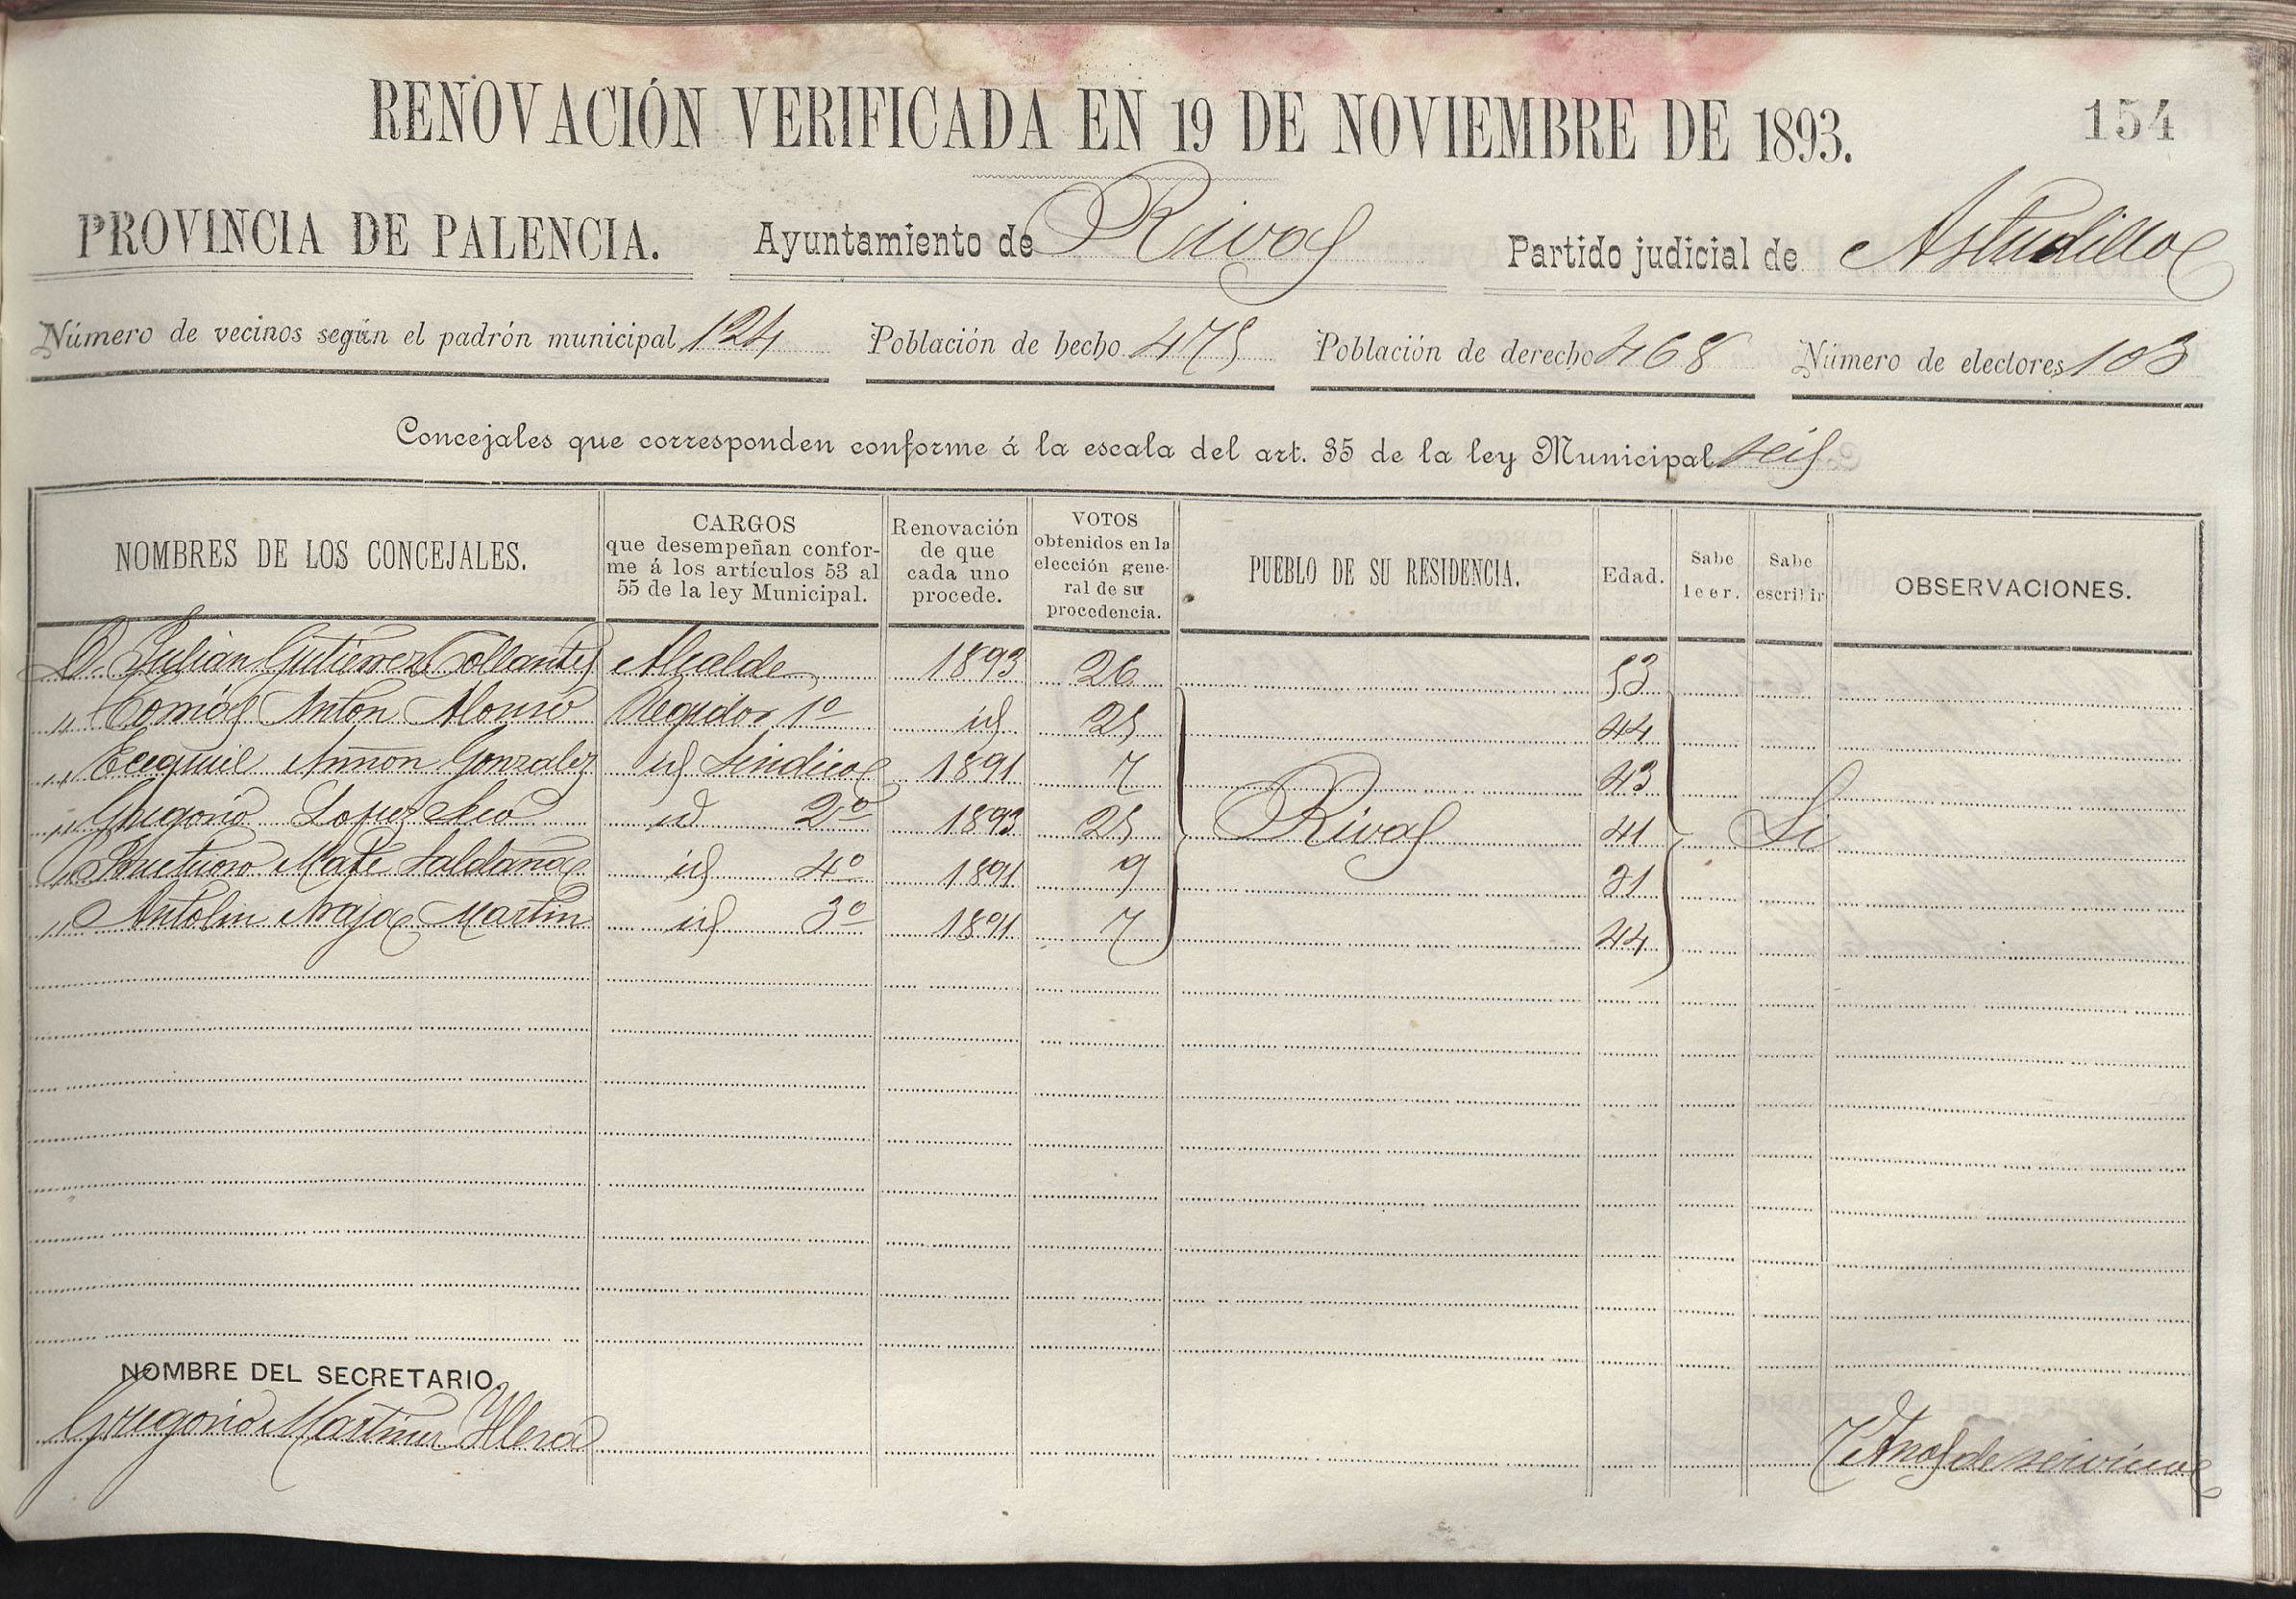 RENOVACIÓN VERIFICADA EN 19 DE NOVIEMBRE DE 1893. 154
PROVINCIA DE PALENCIA. Ayuntamiento de Rivas Partido judicial de Astudillo
Número de vecinos según el padrón municipal 124 Población de hecho 475 Población de derecho 468 Número de electores 103
Concejales que corresponden conforme á la escala del art. 35 de la ley Municipal seis
NOMBRES DE LOS CONCEJALES.
CARGOS
que desempeñan confor-
me á los artículos 53 al
55 de la ley Municipal.
Renovación
de que
cada uno
procede.
VOTOS
obtenidos en la
elección gene-
ral de su
procedencia.
PUEBLO DE SU RESIDENCIA.
Edad.
Sabe
leer.
Sabe
escribir
OBSERVACIONES.
D. Julián Gutierrez Collantes Alcalde 1893 26 53
" Tomás Anton Alonso Regidor 1º id 25 44
" Ecequiel González id Sindico 1891 7 43
" Gregorio Lopez id 2º 1893 25 Rivas 41 Si
" Fructuoso Mate Saldaña id 4º 1891 9 31
" Antolin Martin id 3º 1891 7 44
NOMBRE DEL SECRETARIO.
Gregorio Martinez Illera 7 Años de servicio